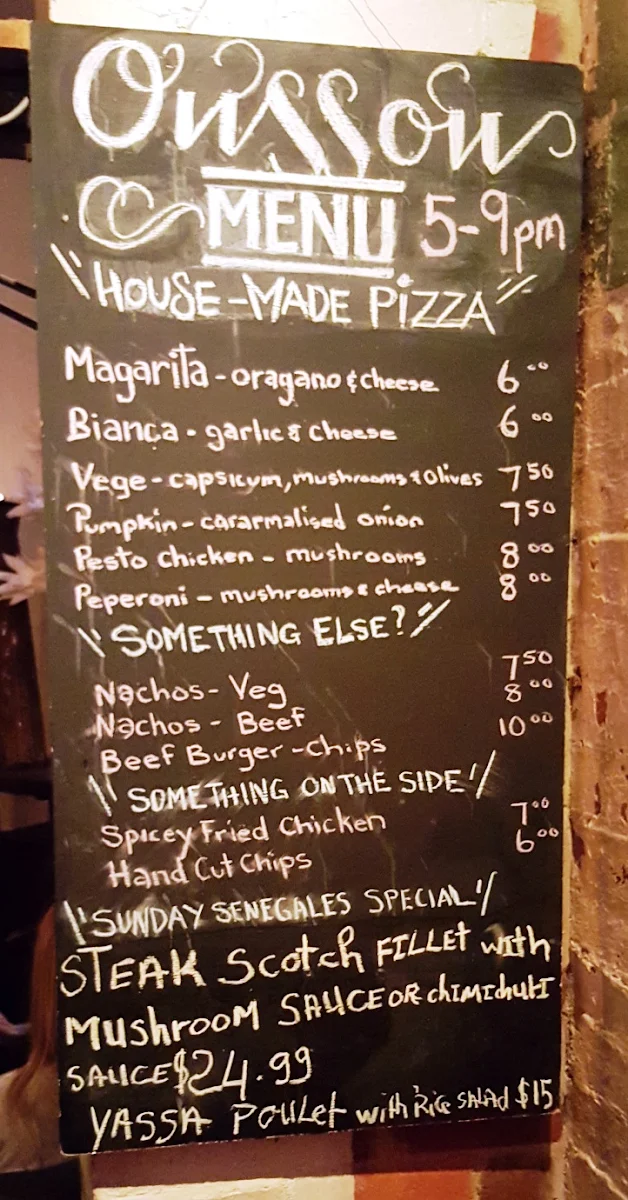 Oussou
MENU 5-9pm
"HOUSE-MADE PiZZA"
Magarita - oragano & cheese 6.00
Bianca - garlic & cheese 6 00
Vege - capsicym, mushrooms & Olives 7 50
Pumpkin - cararmalised onion 7 50
Pesto Chicken - mushrooms 8 00
Peperoni - mushrooms & cheese 8 00
"SOMETHING ELSE?"
Nachos - Veg 7 50
Nachos - Beef 8 00
Beef Burger - Chips 10 00
"SOMETHING ON THE SIDE"
Spicey Fried Chicken 7 00
Hand Cut Chips 6 00
"SUNDAY SENEGALES SPECIAL"
STEAK Scotch FILLET with
MushrooM SAUCE OR chiMichuri
SAUCE $24.99
YASSA Poulet with Rice SALAD $15